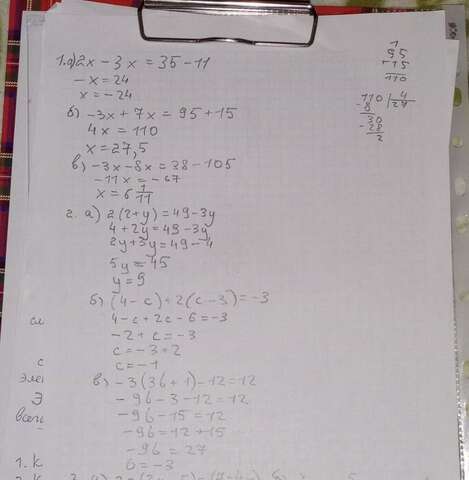 1.а) 2x - 3x = 35 - 11
- x = 24
x = - 24
б) - 3x + 7x = 95 + 15
4x = 110
x = 27,5
в) - 3x - 8x = 38 - 105
- 11x = - 67
x = 6 1/11
2. а) 2(2+y) = 49 - 3y
4 + 2y = 49 - 3y
2y + 3y = 49 - 4
5y = 45
y = 9
б) (4 - c) + 2(c - 3) = - 3
4 - c + 2c - 6 = - 3
- 2 + c = - 3
c = - 3 + 2
c = - 1
в) - 3(3b + 1) - 12 = 12
- 9b - 3 - 12 = 12
- 9b - 15 = 12
- 9b = 12 + 15
- 9b = 27
b = - 3
1
95
+15
110
110 | 4
- 8 27
30
- 28
2
с
элем
Э
всегд
1. К